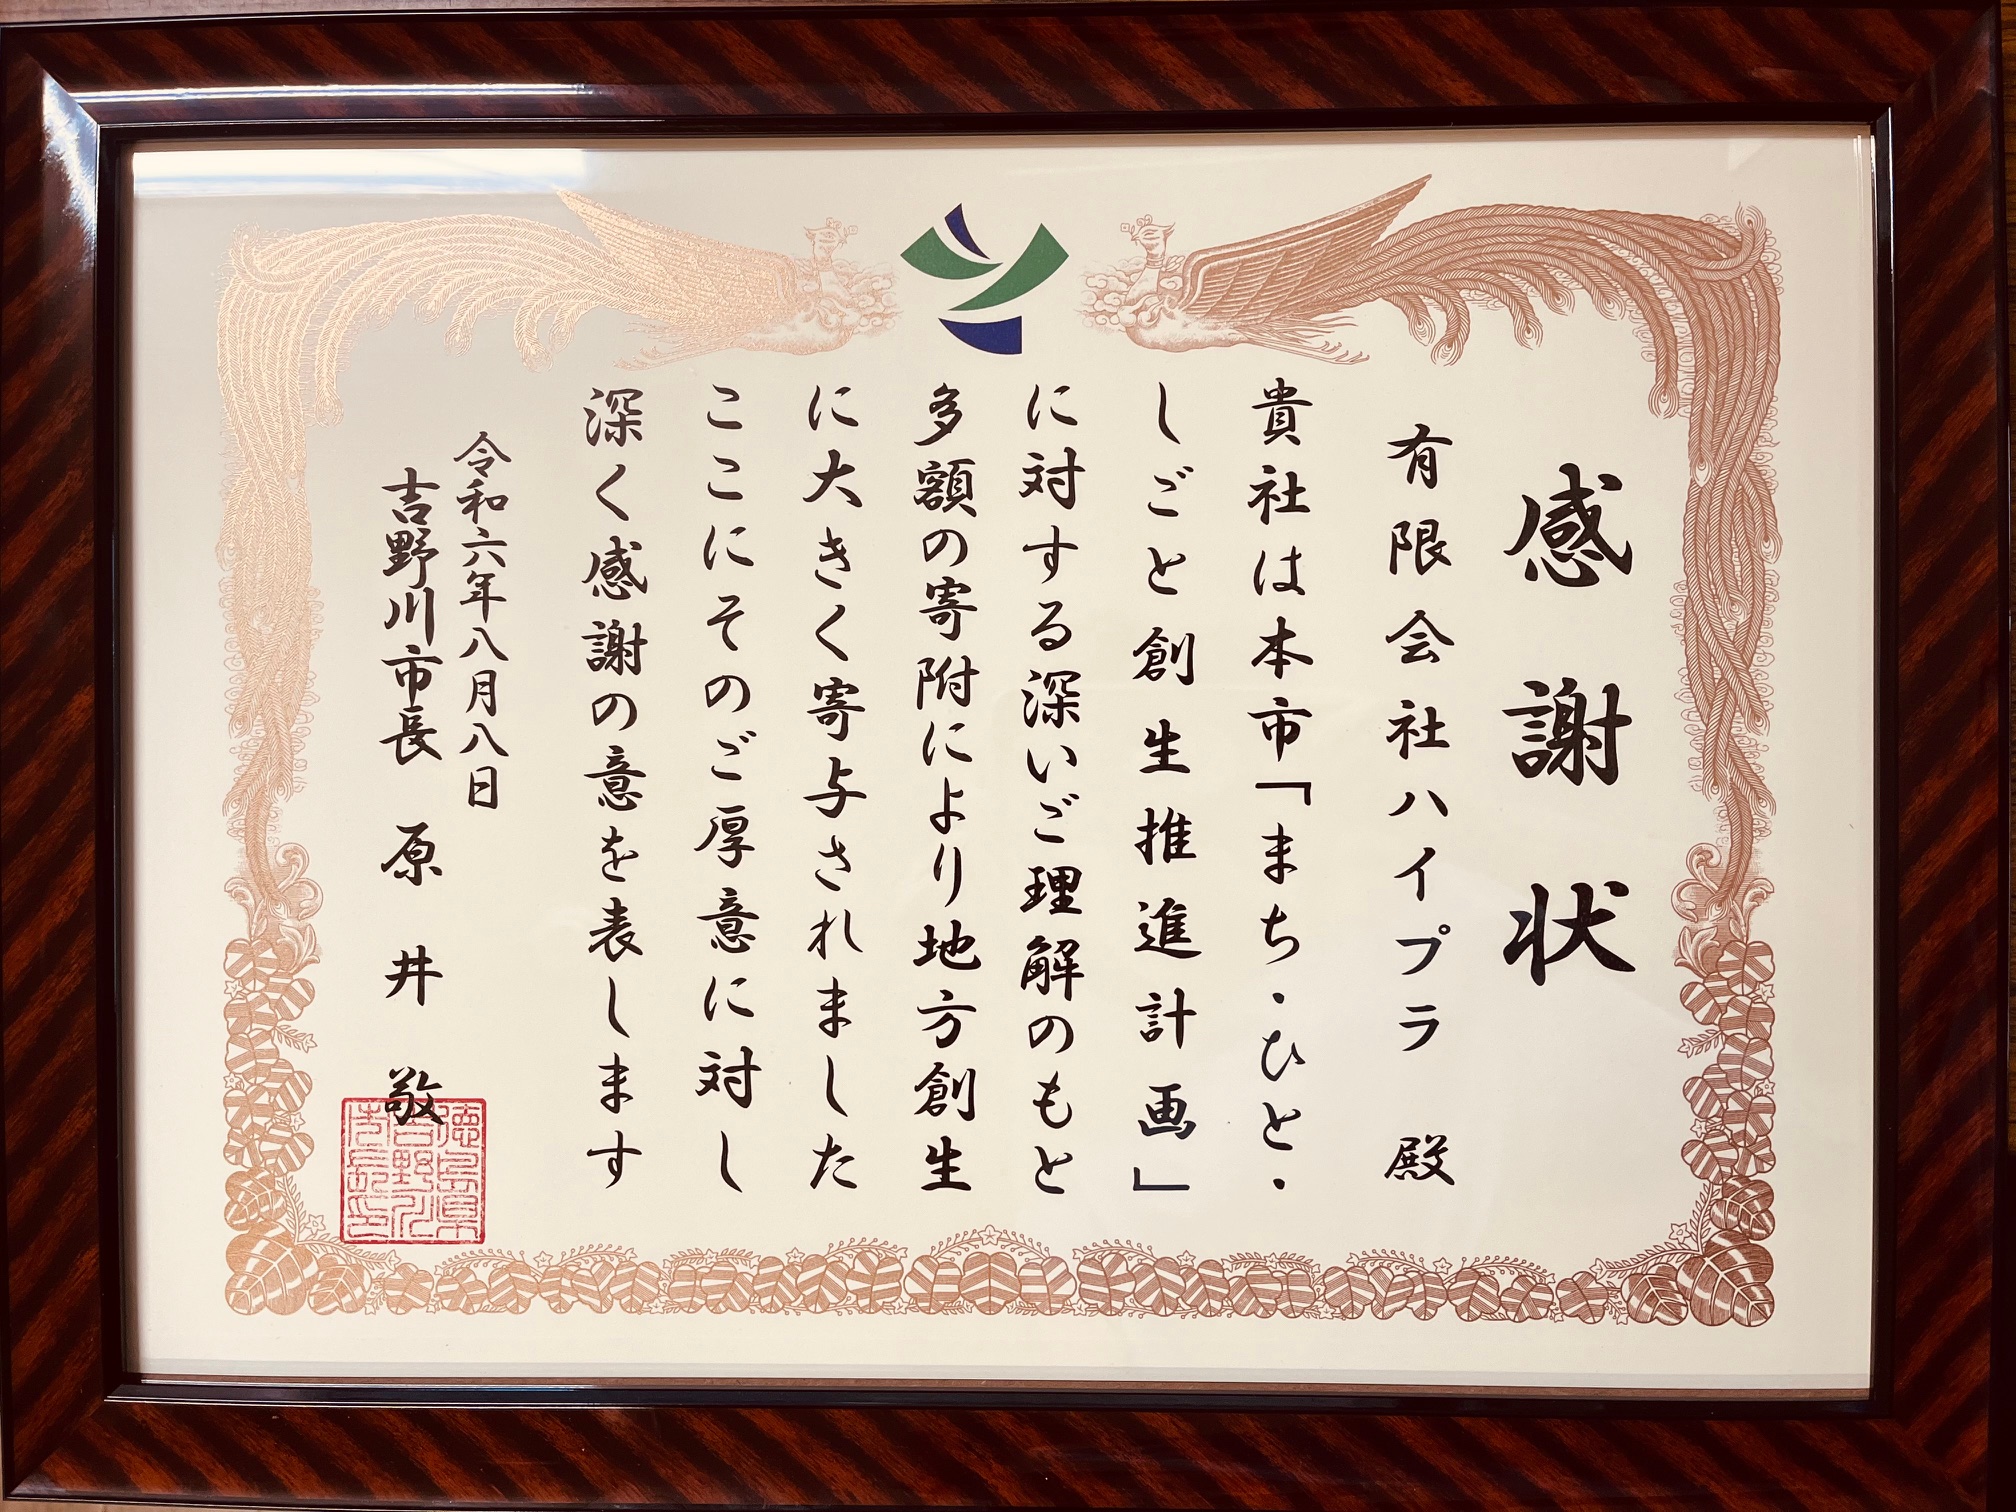 感謝状
有限会社ハイプラ 殿
貴社は本市「まち・ひと・
しごと創生推進計画」
に対する深いご理解のもと
多額の寄附により地方創生
に大きく寄与されました
ここにそのご厚意に対し
深く感謝の意を表します
令和六年八月八日
吉野川市長 原井 敬
徳島県
吉野川
市長印